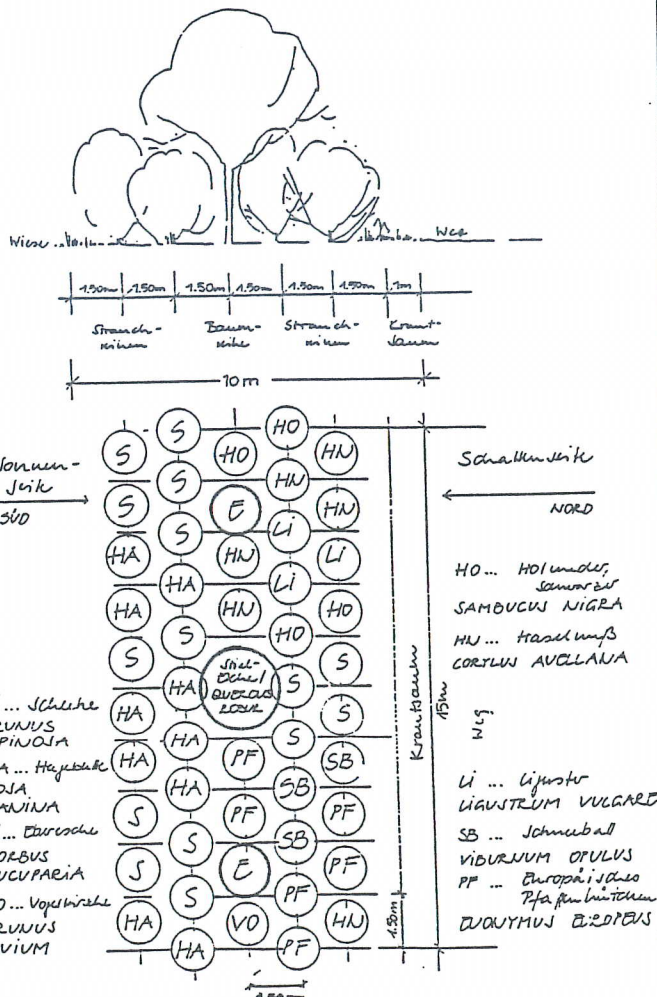 Wiese
Weg
1.50m 1.50m 1.50m 1.50m 1.50m 1.50m 1m
Strauch-
reihen
Baum-
reihe
Strauch-
reihen
Kraut-
saum
10m
Sonnen-
seite
SÜD
Schattenseite
NORD
S S HO HO HN
S S E HN HN
HA S HN Li Li
HA HA HN Li HO
S S Stiel-
eiche/
QUERCUS
ROBUR
HO S
HA HA S S
HA HA PF S SB
S HA PF SB PF
S S E SB PF
HA S VO PF HN
HA PF
Krautsaum
15m
Weg
1.50m
1.50m
HO... Holunder,
schwarzer
SAMBUCUS NIGRA
HN... Haselnuß
CORYLUS AVELLANA
Li ... Liguster
LIGUSTRUM VULGARE
SB ... Schneeball
VIBURNUM OPULUS
PF ... Europäisches
Pfaffenhütchen
EUONYMUS
... Schlehe
RUNUS
PINOSA
A ... Hagebutte
OSA
ANINA
... Eberesche
ORBUS
UCUPARiA
O ... Vogelkirsche
RUNUS
VIUM